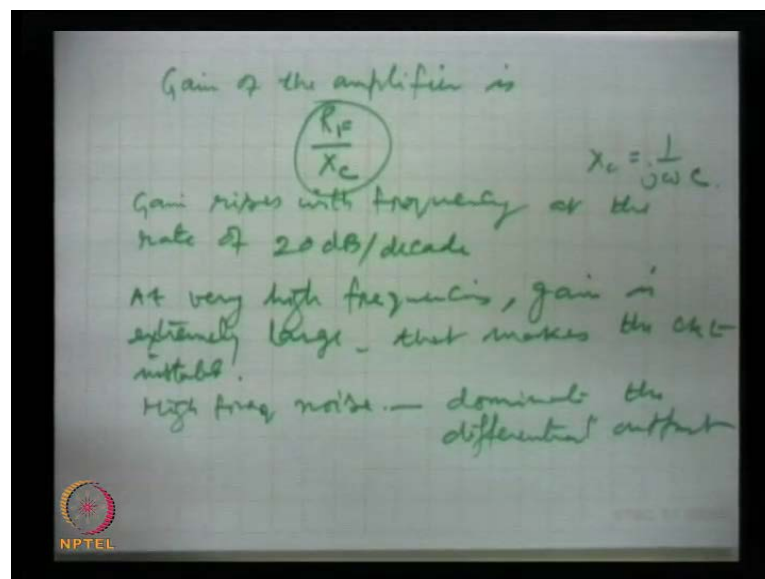 Gain of the amplifier is
R_F / X_C
X_C = 1 / jωC.
Gain rises with frequency at the
rate of 20 dB/decade
At very high frequencies, gain is
extremely large - that makes the ckt
unstable.
High freq noise. — dominate the
differential output
NPTEL